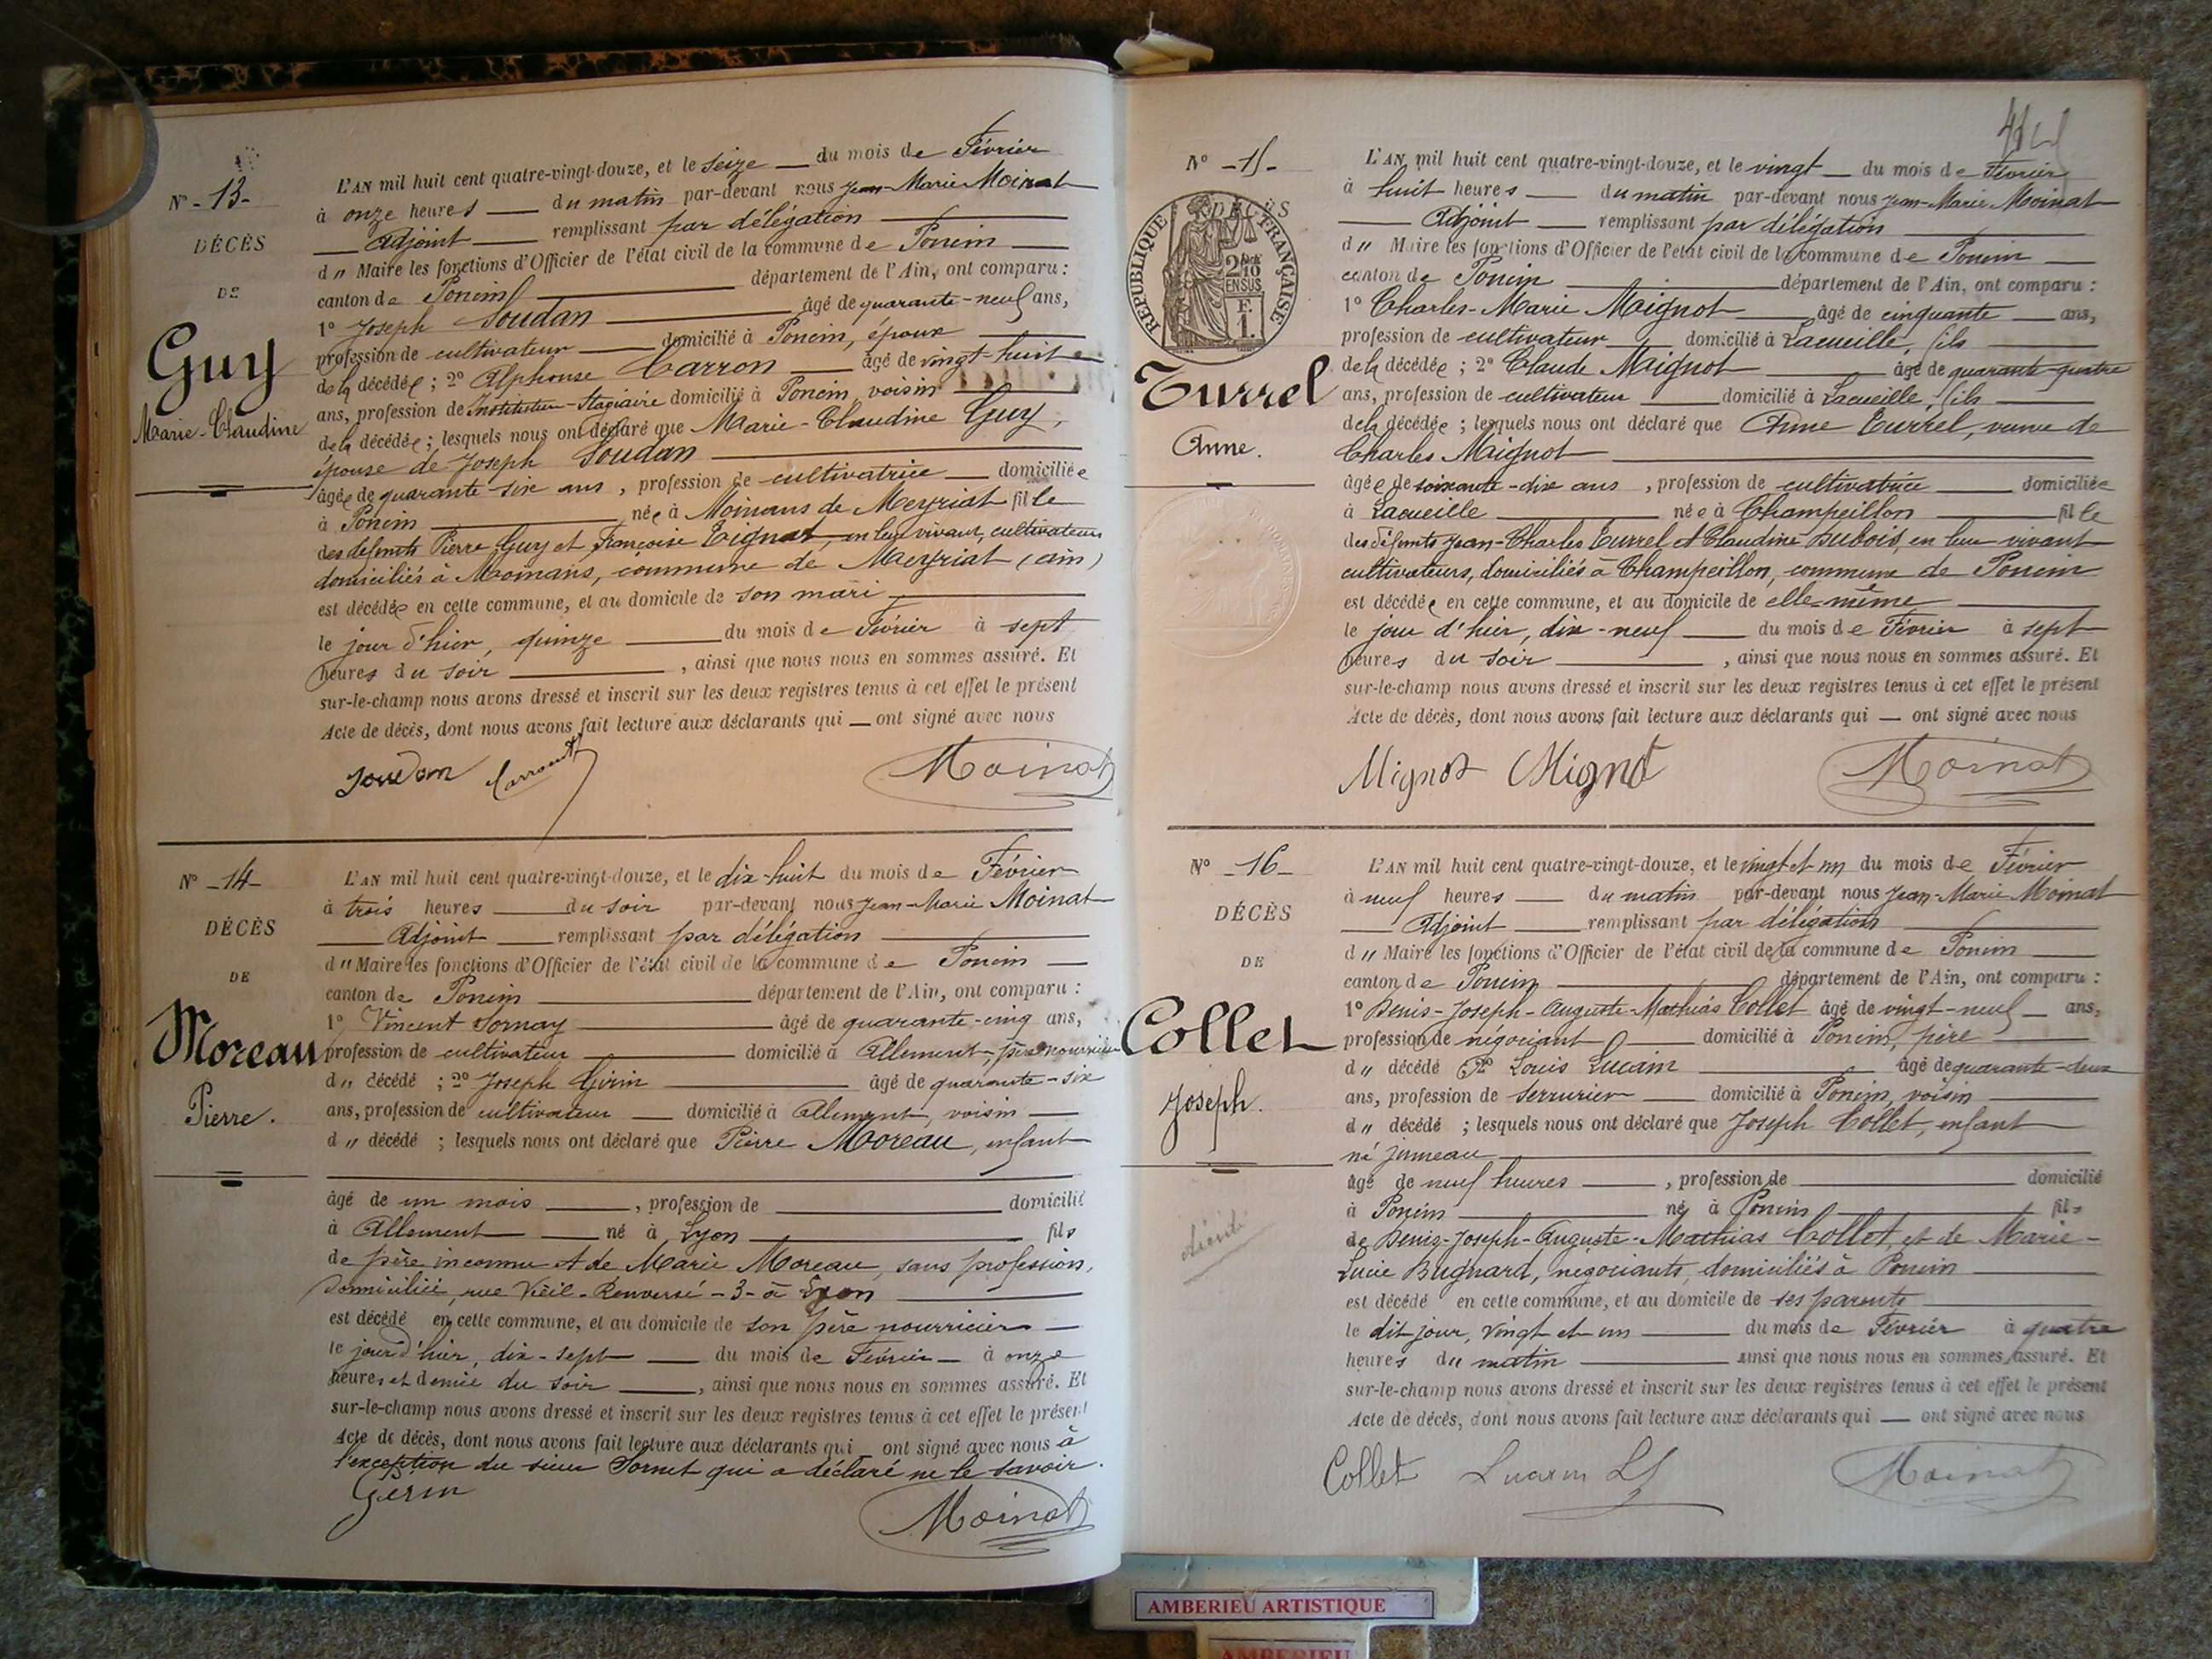 N° - 13 -
DÉCÈS
DE
Guy
Marie-Claudine
L'AN mil huit cent quatre-vingt-douze, et le seize du mois de Février
à onze heures du matin par-devant nous Jean-Marie Moinat
Adjoint remplissant par délégation
d" Maire les fonctions d'Officier de l'état civil de la commune de Poncin
canton de Poncin département de l'Ain, ont comparu :
1° Joseph Soudan âgé de quarante-neuf ans,
profession de cultivateur domicilié à Poncin, époux
de la décédée ; 2° Alphonse Carron âgé de vingt-huit
ans, profession de Instituteur-Stagiaire domicilié à Poncin, voisin
de la décédée ; lesquels nous ont déclaré que Marie-Claudine Guy,
épouse de Joseph Soudan
âgée de quarante-six ans, profession de cultivatrice domiciliée
à Poncin née à Moinans de Meyriat fille
des defunts Pierre Guy et Françoise Tignat, en leur vivant, cultivateurs
domiciliés à Moinans, commune de Meyriat (ain)
est décédée en cette commune, et au domicile de son mari
le jour d'hier, quinze du mois de Février à sept
heures du soir , ainsi que nous nous en sommes assuré. Et
sur-le-champ nous avons dressé et inscrit sur les deux registres tenus à cet effet le présent
Acte de décès, dont nous avons fait lecture aux déclarants qui ont signé avec nous
Soudan Carront Moinat
N° - 14 -
DÉCÈS
DE
Moreau
Pierre.
L'AN mil huit cent quatre-vingt-douze, et le dix-huit du mois de Février
à trois heures du soir par-devant nous Jean-Marie Moinat
Adjoint remplissant par délégation
d" Maire les fonctions d'Officier de l'état civil de la commune de Poncin
canton de Poncin département de l'Ain, ont comparu :
1° Vincent Sornay âgé de quarante-cinq ans,
profession de cultivateur domicilié à Allement, père nourricier
d" décédé ; 2° Joseph Girin âgé de quarante-six
ans, profession de cultivateur domicilié à Allement, voisin
d" décédé ; lesquels nous ont déclaré que Pierre Moreau, enfant
âgé de un mois , profession de domicilié
à Allement né à Lyon fils
de père inconnu et de Marie Moreau, sans profession,
domiciliée, rue Vieil-Renversé -3- à Lyon
est décédé en cette commune, et au domicile de son père nourricier
le jour d'hier, dix-sept du mois de Février à onze
heures et demie du soir , ainsi que nous nous en sommes assuré. Et
sur-le-champ nous avons dressé et inscrit sur les deux registres tenus à cet effet le présent
Acte de décès, dont nous avons fait lecture aux déclarants qui ont signé avec nous à
l'exception du sieur Sornet qui a déclaré ne le savoir.
Gerin Moinat
N° - 15 -
DÉCÈS
RÉPUBLIQUE FRANÇAISE
2/10 EN SUS
F. 1.
Turrel
Anne.
L'AN mil huit cent quatre-vingt-douze, et le vingt du mois de Février
à huit heures du matin par-devant nous Jean-Marie Moinat
Adjoint remplissant par délégation
d" Maire les fonctions d'Officier de l'état civil de la commune de Poncin
canton de Poncin département de l'Ain, ont comparu :
1° Charles-Marie Maignot âgé de cinquante ans,
profession de cultivateur domicilié à Lacueille, fils
de la décédée ; 2° Claude Maignot âgé de quarante-quatre
ans, profession de cultivateur domicilié à Lacueille, fils
de la décédée ; lesquels nous ont déclaré que Anne Turrel, veuve de
Charles Maignot
âgée de soixante-dix ans , profession de cultivatrice domiciliée
à Lacueille née à Champeillon fille
des défunts Jean-Charles Turrel et Claudine Dubois, en leur vivant
cultivateurs, domiciliés à Champeillon, commune de Poncin
est décédée en cette commune, et au domicile de elle-même
le jour d'hier, dix-neuf du mois de Février à sept
heures du soir , ainsi que nous nous en sommes assuré. Et
sur-le-champ nous avons dressé et inscrit sur les deux registres tenus à cet effet le présent
Acte de décès, dont nous avons fait lecture aux déclarants qui ont signé avec nous
Mignot Mignot Moinat
N° - 16 -
DÉCÈS
DE
Collet
Joseph.
L'AN mil huit cent quatre-vingt-douze, et le vingt et un du mois de Février
à neuf heures du matin par-devant nous Jean-Marie Moinat
Adjoint remplissant par délégation
d" Maire les fonctions d'Officier de l'état civil de la commune de Poncin
canton de Poncin département de l'Ain, ont comparu :
1° Denis-Joseph-Auguste-Mathias Collet âgé de vingt-neuf ans,
profession de négociant domicilié à Poncin, père
d" décédé 2° Louis Lucain âgé de quarante-deux
ans, profession de Serrurier domicilié à Poncin, voisin
d" décédé ; lesquels nous ont déclaré que Joseph Collet, enfant
né jumeau
âgé de neuf heures , profession de domicilié
à Poncin né à Poncin fils
de Denis-Joseph-Auguste-Mathias Collet, et de Marie-
Lucie Bugnard, négociants, domiciliés à Poncin
est décédé en cette commune, et au domicile de ses parents
le dit jour, vingt et un du mois de Février à quatre
heures du matin ainsi que nous nous en sommes assuré. Et
sur-le-champ nous avons dressé et inscrit sur les deux registres tenus à cet effet le présent
Acte de décès, dont nous avons fait lecture aux déclarants qui ont signé avec nous
Collet Lucain Moinat
AMBERIEU ARTISTIQUE
AMBERIEU